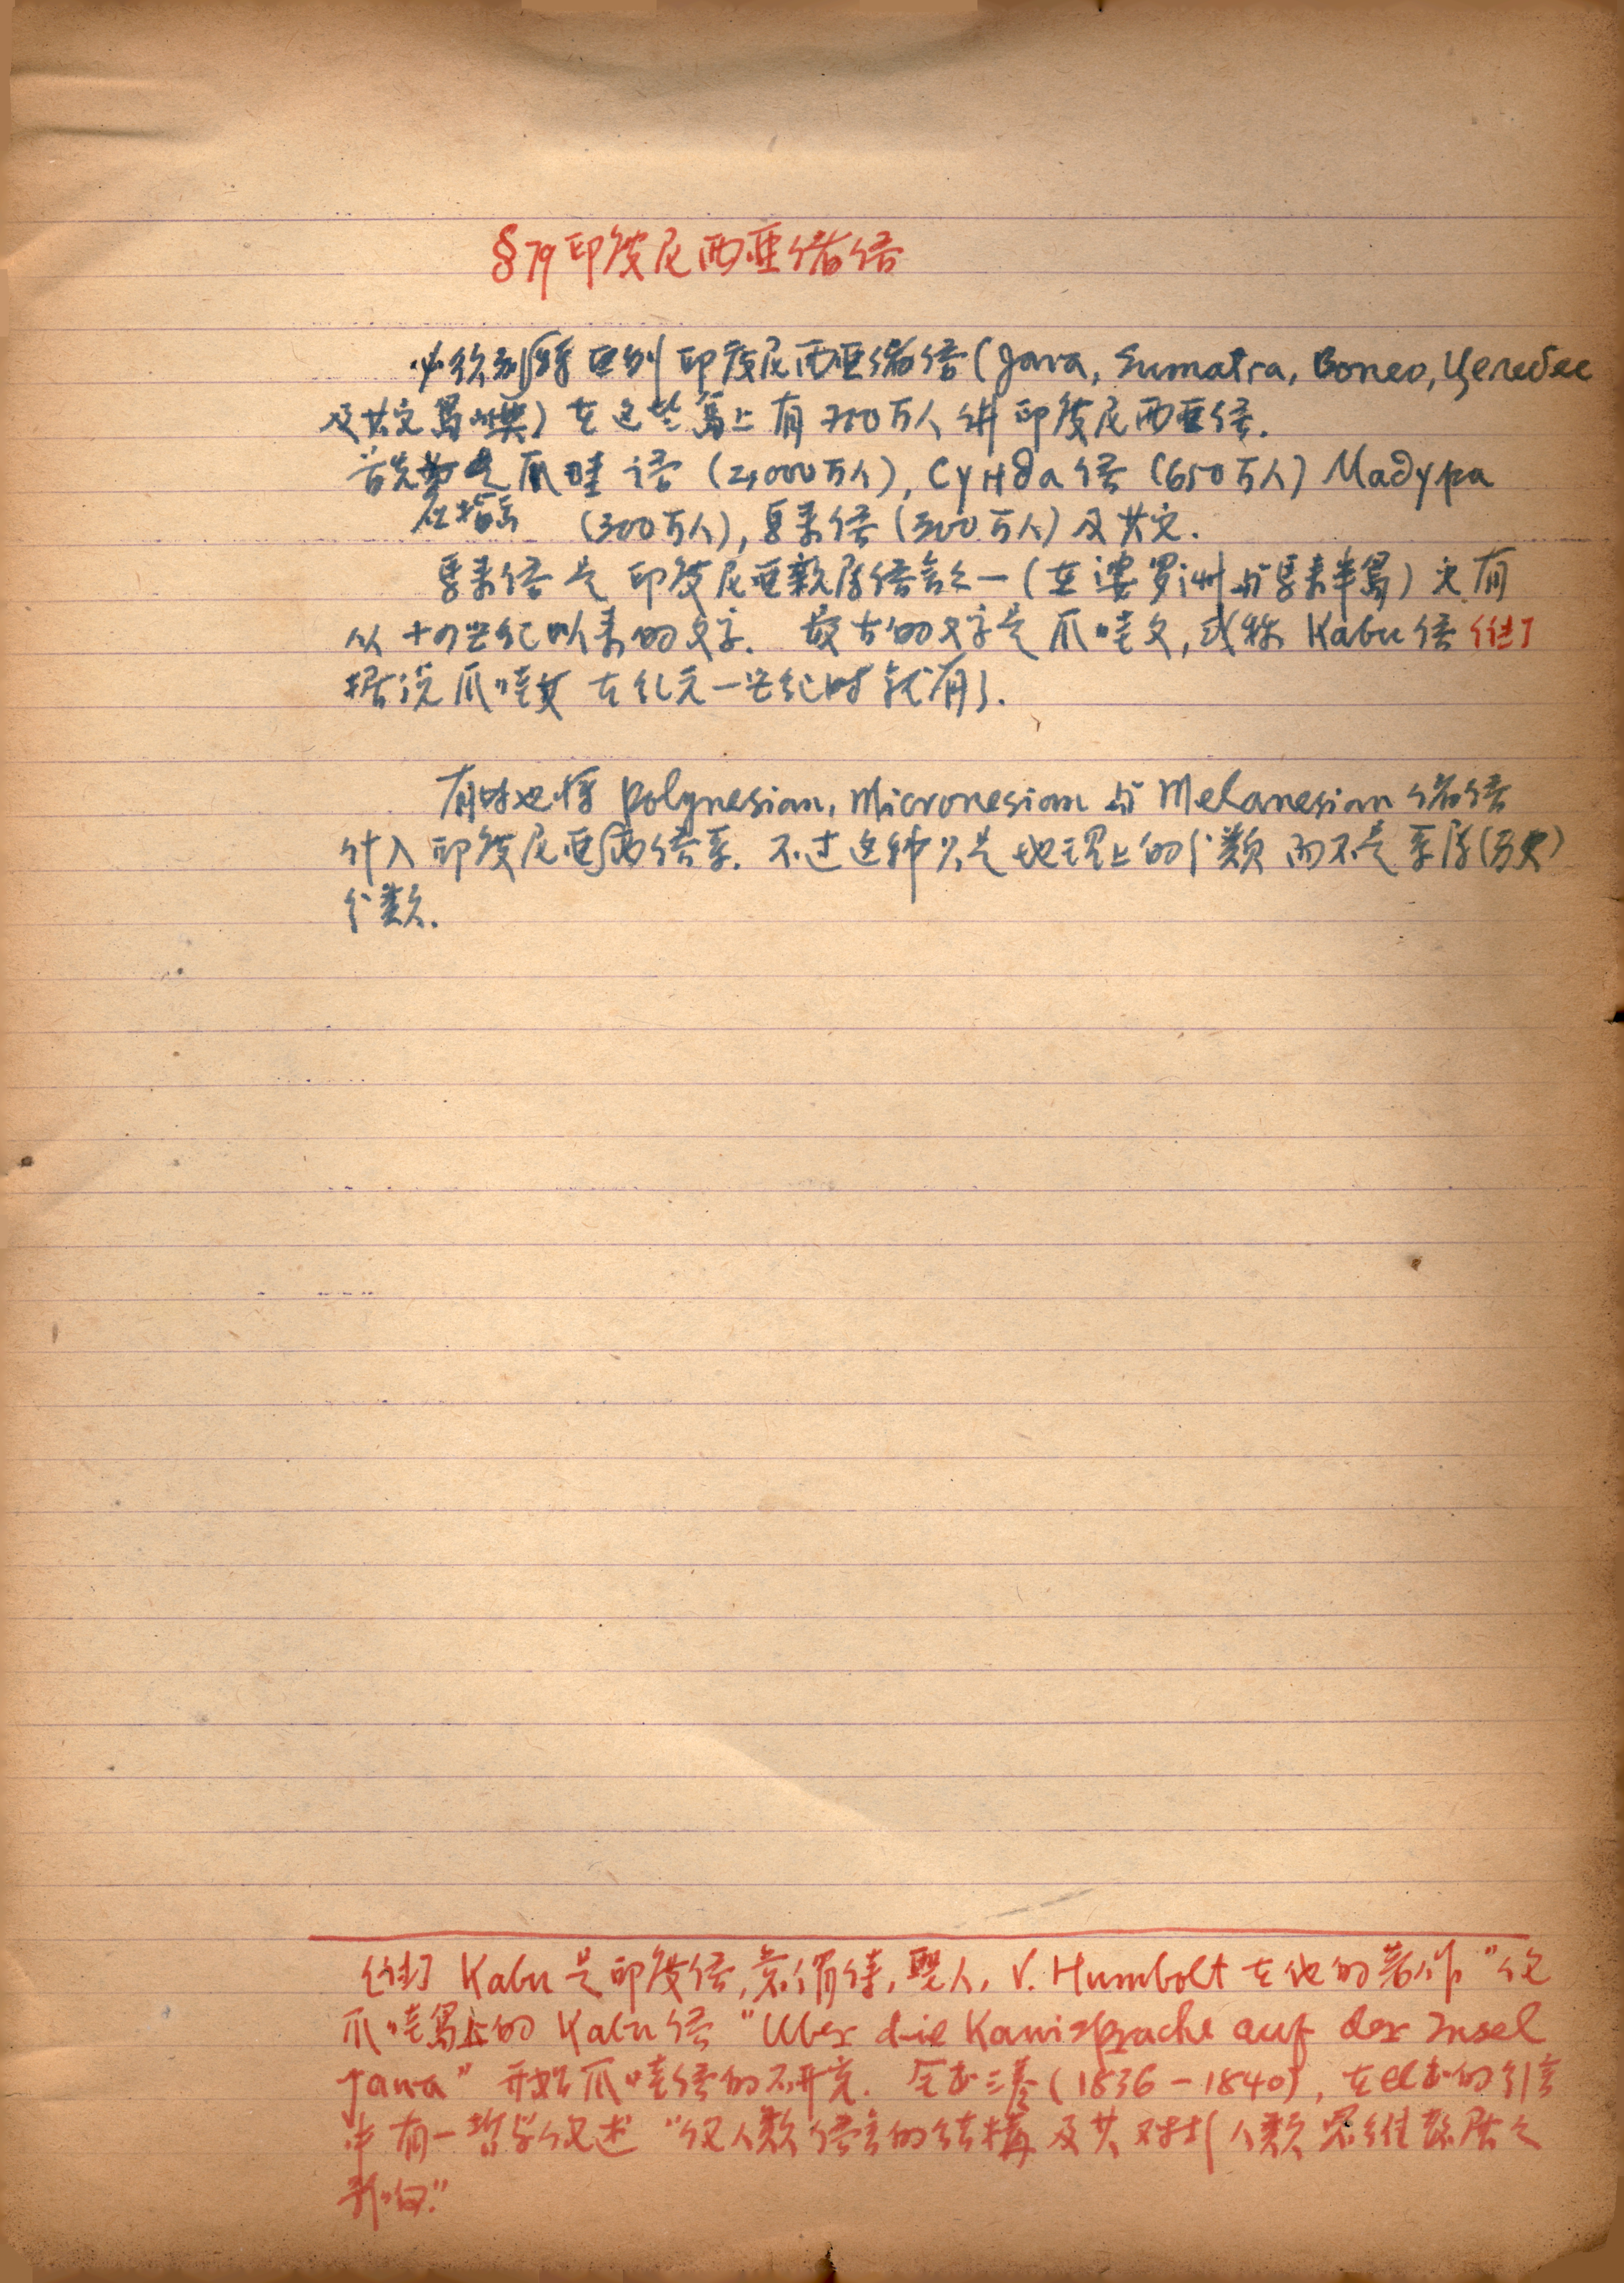 §79 印度尼西亚诸语
必须 区别印度尼西亚诸语(Java, Sumatra, Boneo, Целебес
及其它岛屿) 在这些岛上有700万人讲印度尼西亚语.
首先 是爪哇语 (2,000万人), Сунда语 (650万人) Мадура
应指出 (300万人), 马来语 (300万人) 及其它.
马来语是印度尼亚亲属语言之一 (在婆罗洲与马来半岛) 它有
从十四世纪以来的文字. 最古的文字是爪哇文, 或称 Kabu语 [注]
据说爪哇文在纪元一世纪时就有了.
有时也将 Polynesian, Micronesian 与 Melanesian 诸语
计入印度尼亚西语系. 不过这种只是地理上的分类而不是系属(历史)
分类.
[注] Kabu是印度语, 意谓诗, 圣人. V. Humbolt 在他的著作"论
爪哇岛上的 Kabu语 "Uber die Kawisprache auf der Insel
Jawa" 开始爪哇语的研究. 全书三卷 (1836-1840), 在此书的引言
中有一哲学论述 "论人类语言的结构及其对于人类思维发展之
影响."